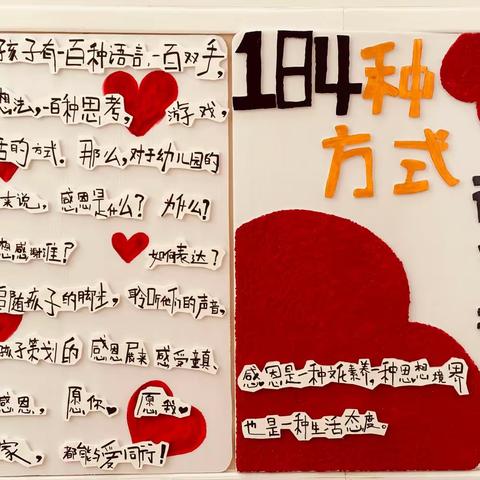 孩子有一百种语言,一百双手,
想法,一百种思考,游戏,
活的方式.那么,对于幼儿园的
来说,感恩是什么?为什么?
想感谢谁?如何表达?
追随孩子的脚步,聆听他们的声音,
孩子策划的感恩展来感受童真.
感恩,愿你 愿我
家,都能与爱同行!
184种
方式
感恩是一种文化素养,一种思想境界
也是一种生活态度。